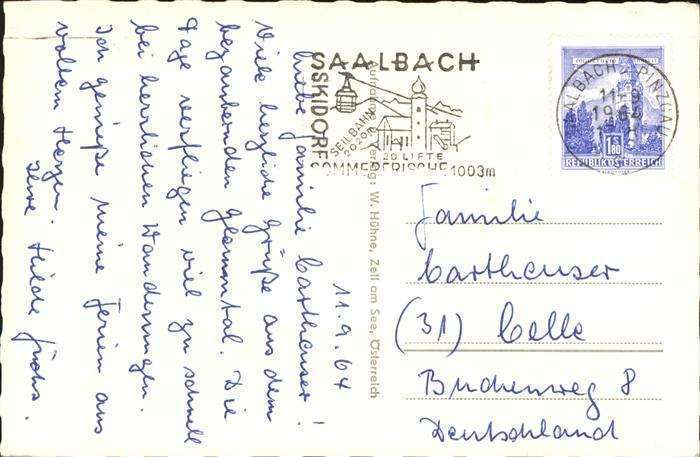 11.9.64
Liebe Familie Cartheuser!
Viele herzliche Grüße aus dem
bezaubernden Glemmtal. Die
Tage verfliegen viel zu schnell
bei herrlichen Wanderungen.
Ich genieße meine Ferien aus
vollem Herzen.
Ihre Hilde Fuchs.
SAALBACH
SKIDORF
SEILBAHN
2020m
20 LIFTE
SOMMERFRISCHE 1003m
SAALBACH, PINZGAU
11-9
1964
1.80
REPUBLIK ÖSTERREICH
Verlag: W. Hühne, Zell am See, Österreich
Familie
Cartheuser
(31) Celle
Buchenweg 8
Deutschland